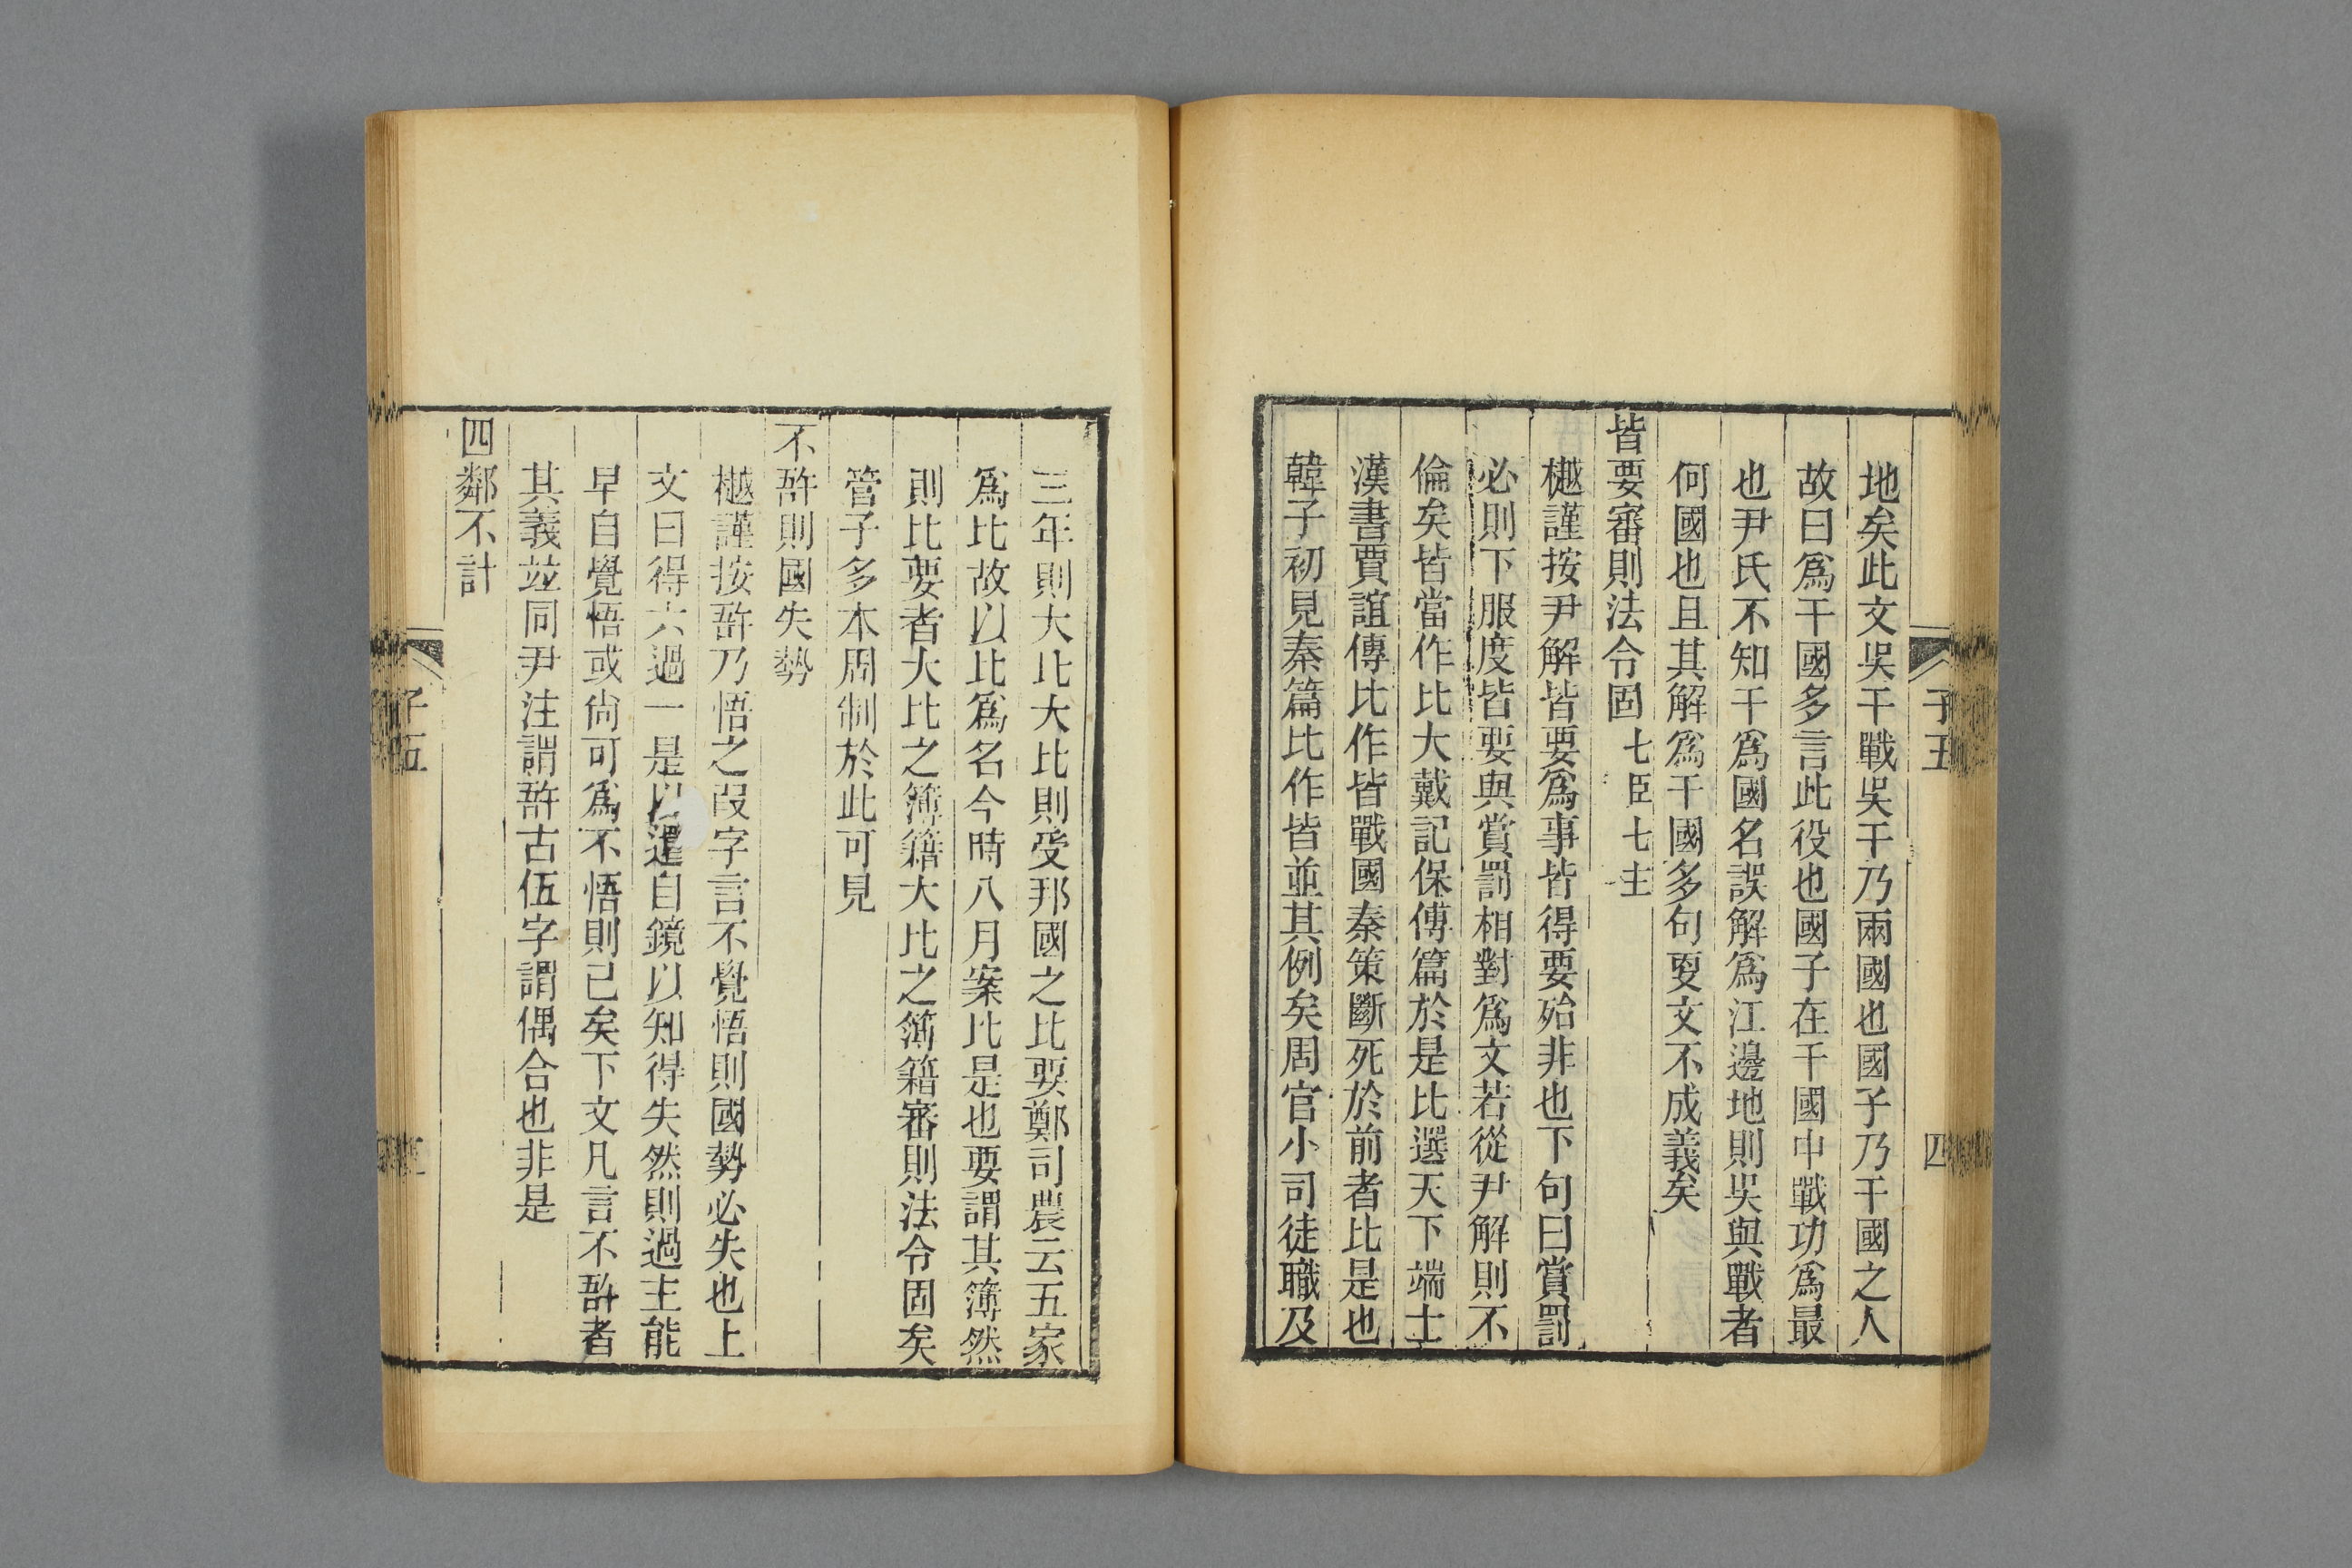 子五
四
地矣此文吳干戰吳干乃兩國也國子乃干國之人
故曰爲干國多言此役也國子在干國中戰功爲最
也尹氏不知干爲國名誤解爲江邊地則吳與戰者
何國也且其解爲干國多句更文不成義矣
皆要審則法令固 七臣七主
樾謹按尹解皆要爲事皆得要殆非也下句曰賞罰
必則下服度皆要與賞罰相對爲文若從尹解則不
倫矣皆當作比大戴記保傅篇於是比選天下端士
漢書賈誼傳比作皆戰國秦策斷死於前者比是也
韓子初見秦篇比作皆並其例矣周官小司徒職及
三年則大比大比則受邦國之比要鄭司農云五家
爲比故以比爲名今時八月案比是也要謂其簿然
則比要者大比之簿籍大比之簿籍審則法令固矣
管子多本周制於此可見
不𧧼則國失勢
樾謹按𧧼乃悟之叚字言不覺悟則國勢必失也上
文曰得六過一是以還自鏡以知得失然則過主能
早自覺悟或尚可爲不悟則已矣下文凡言不𧧼者
其義並同尹注謂𧧼古伍字謂偶合也非是
四鄰不計
子五